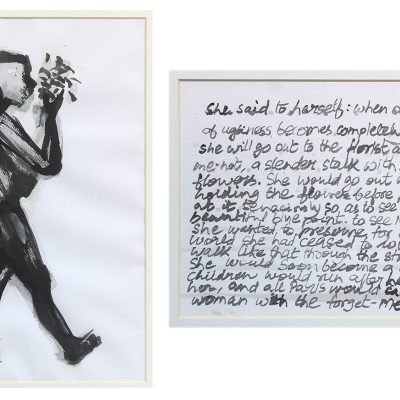 She said to herself: when
of ugliness becomes completely
she will go out to the florist
me-not, a slender stalk with
flowers. She would go out
holding the flower before
at it tenaciously so as to see
beautiful blue point. to see
She wanted to preserve for
world she had ceased to
walk like that through the
She would soon become a
children would run after
her, and all Paris would
woman with the forget-me